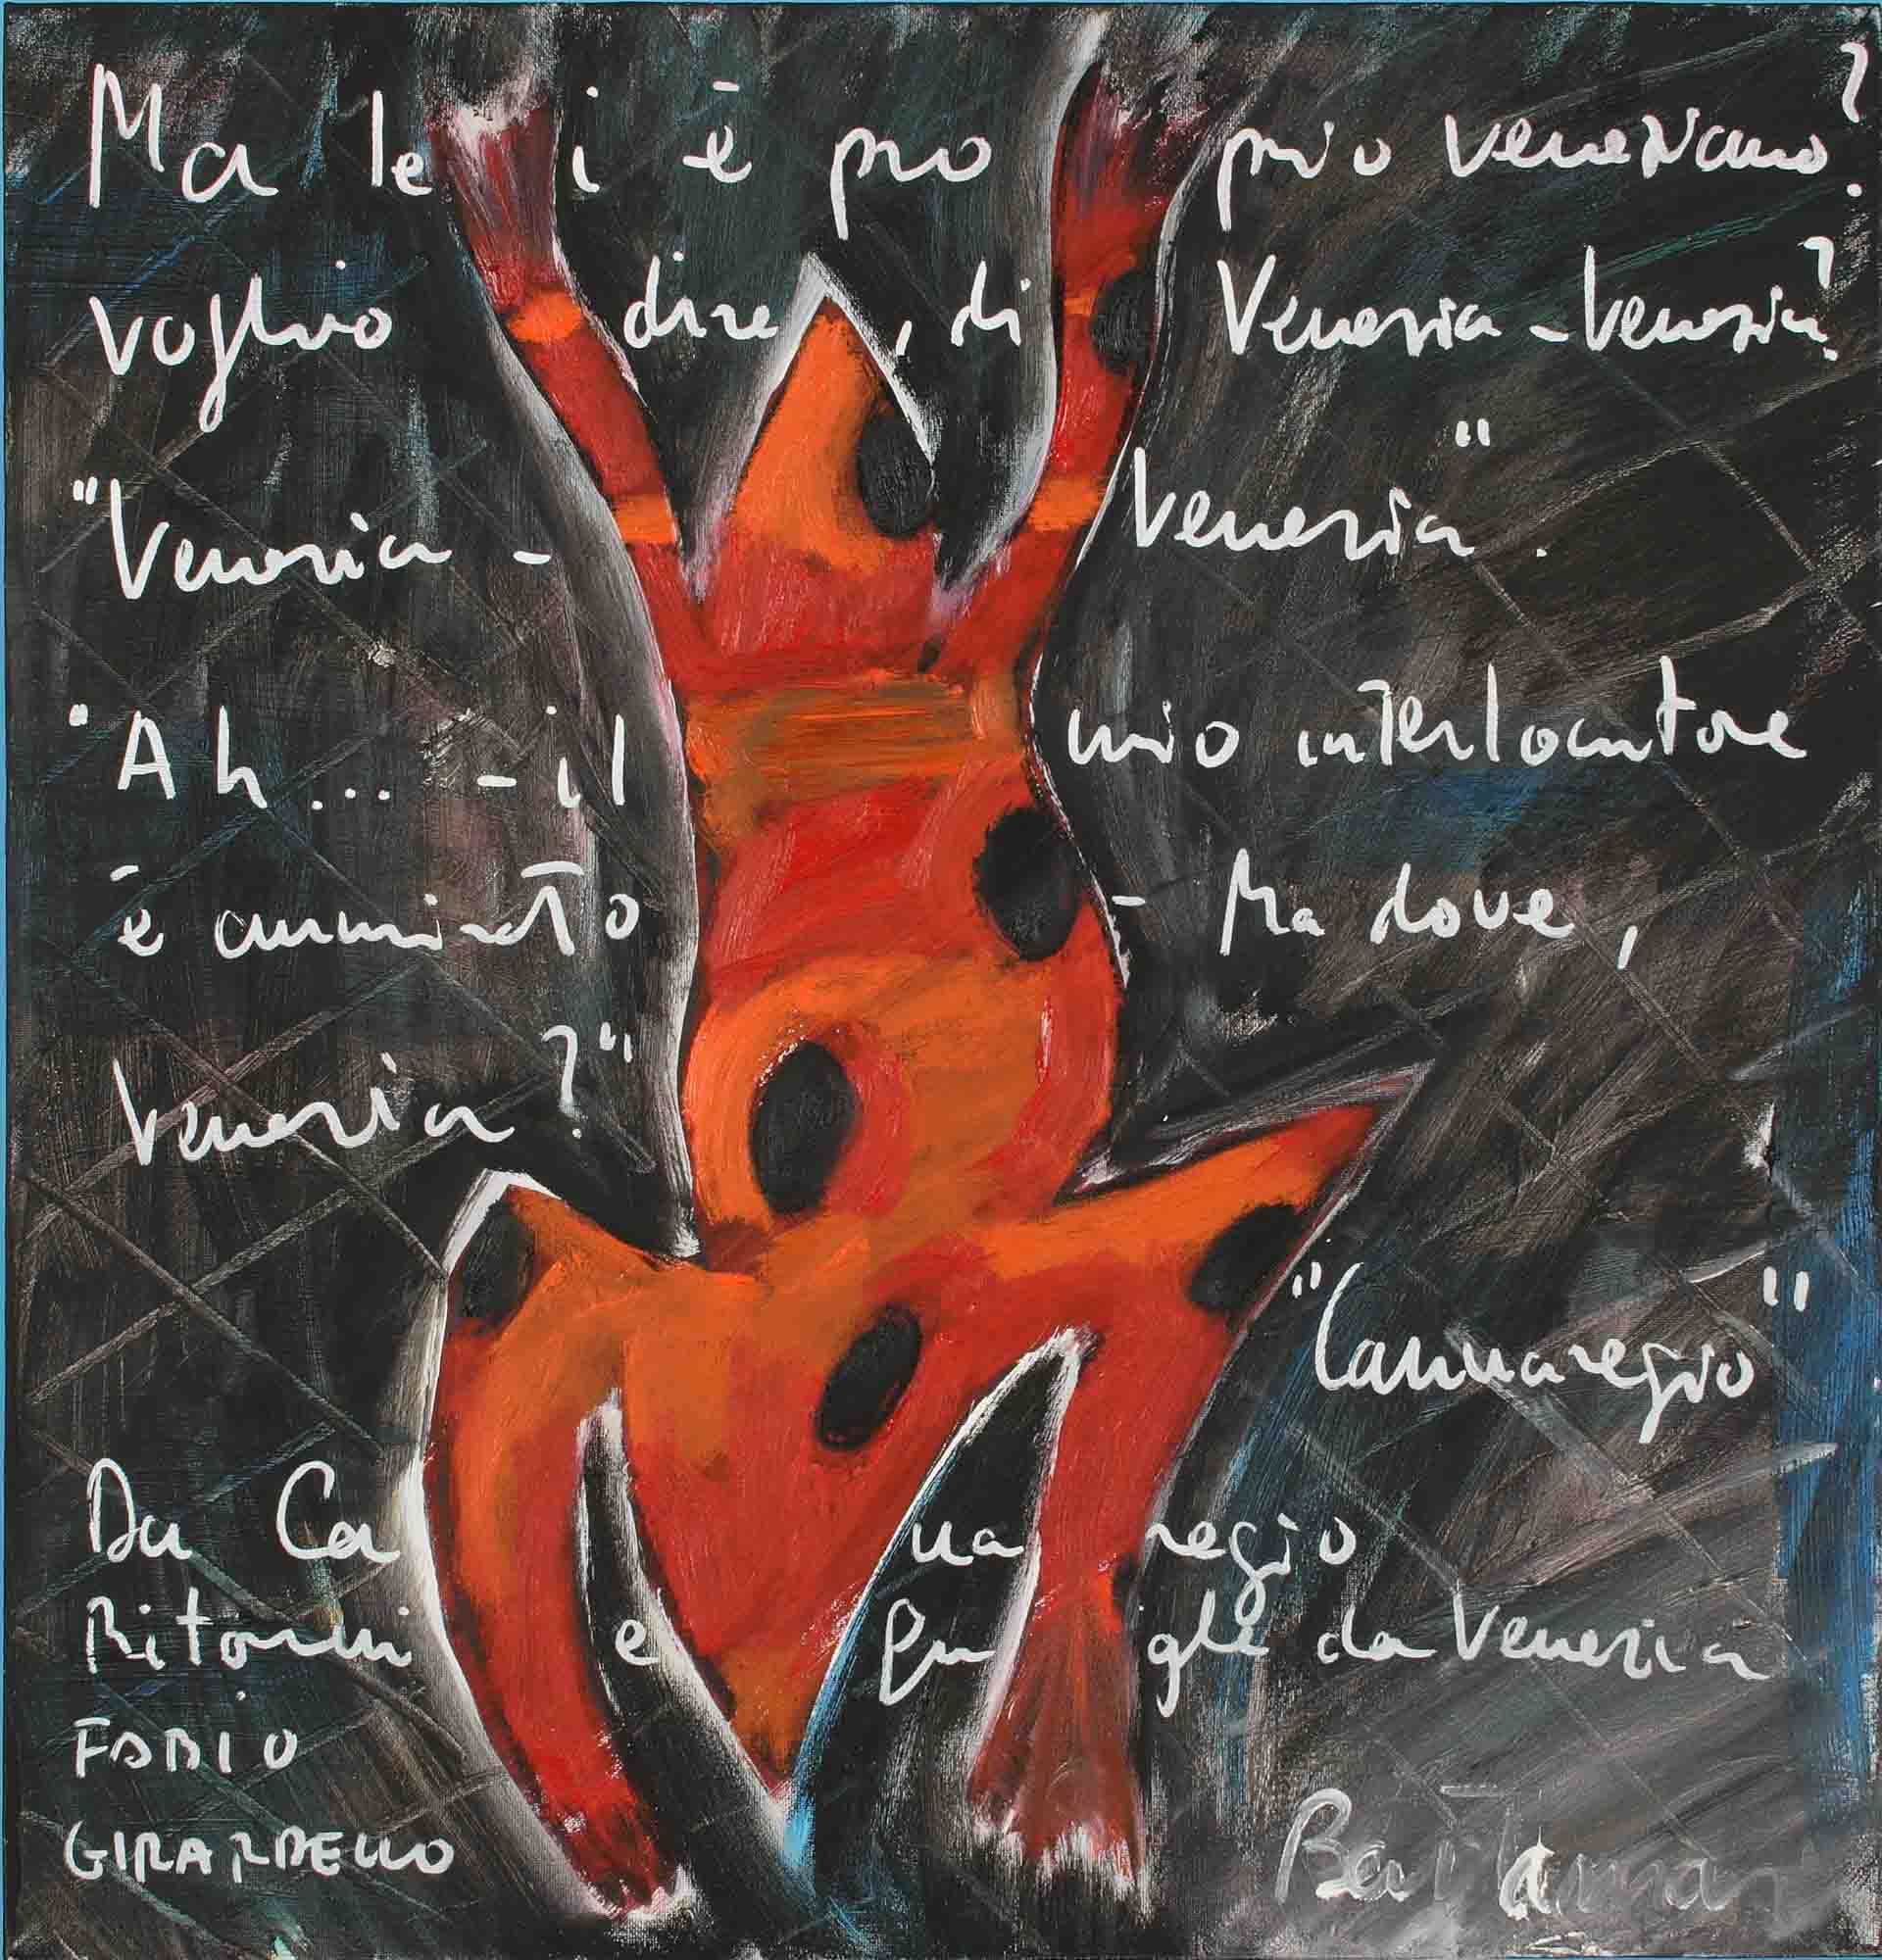 Ma lei è proprio veneziano?
Voglio dire, di Venezia-Venezia?
"Venezia - Venezia".
"Ah... - il mio interlocutore
è ammirato - Ma dove,
Venezia?"
"Cannaregio"
Da Canaregio
Ritorni e da Venezia
FABIO
GIRARDELLO